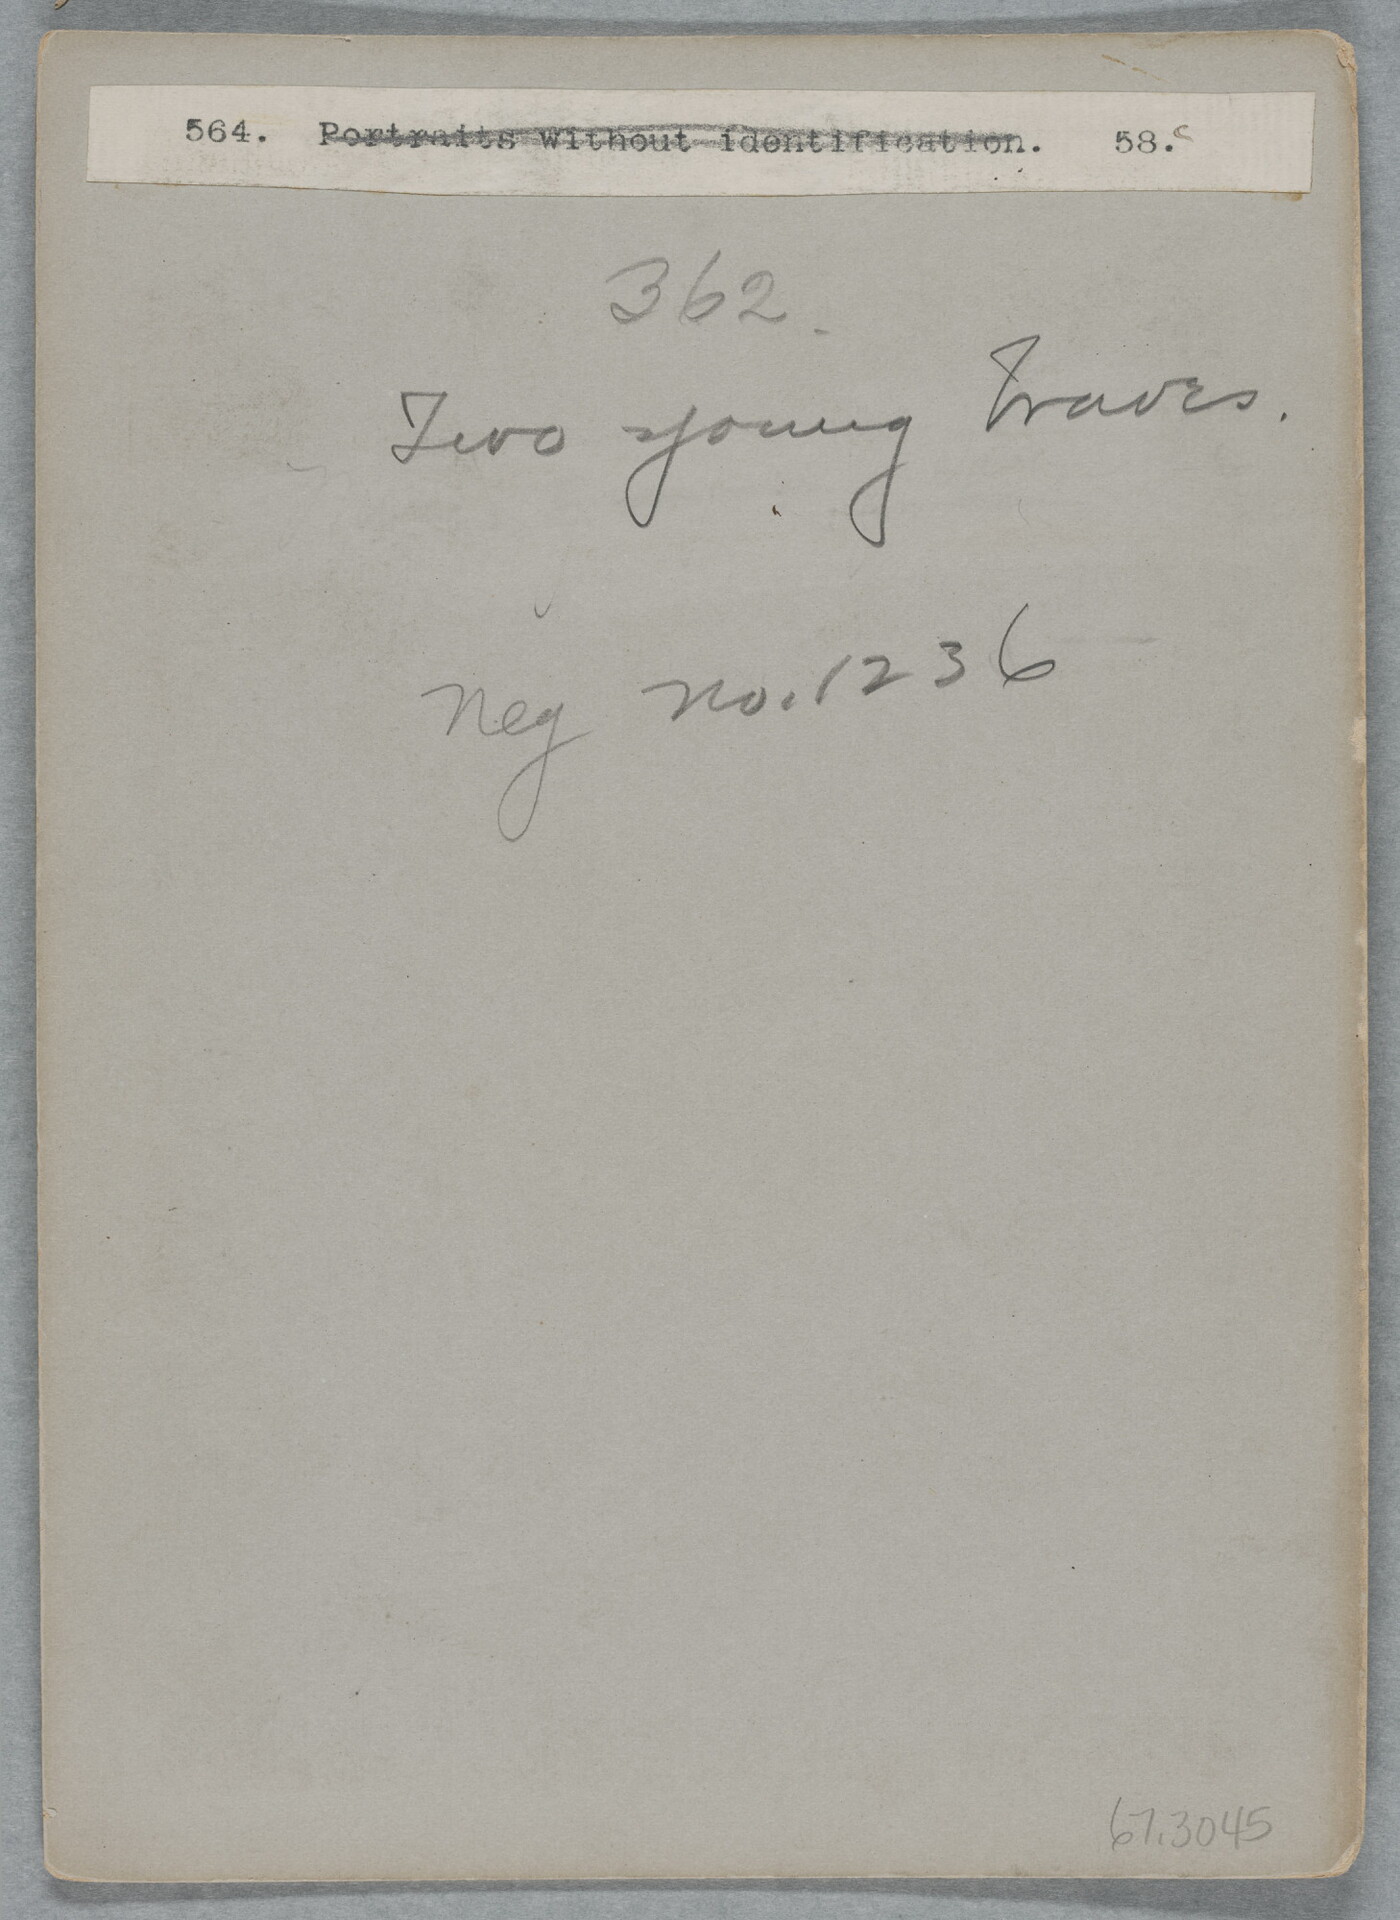 564. Portraits without identification. 58.c
362.
Two young braves.
Neg no. 1236
67.3045